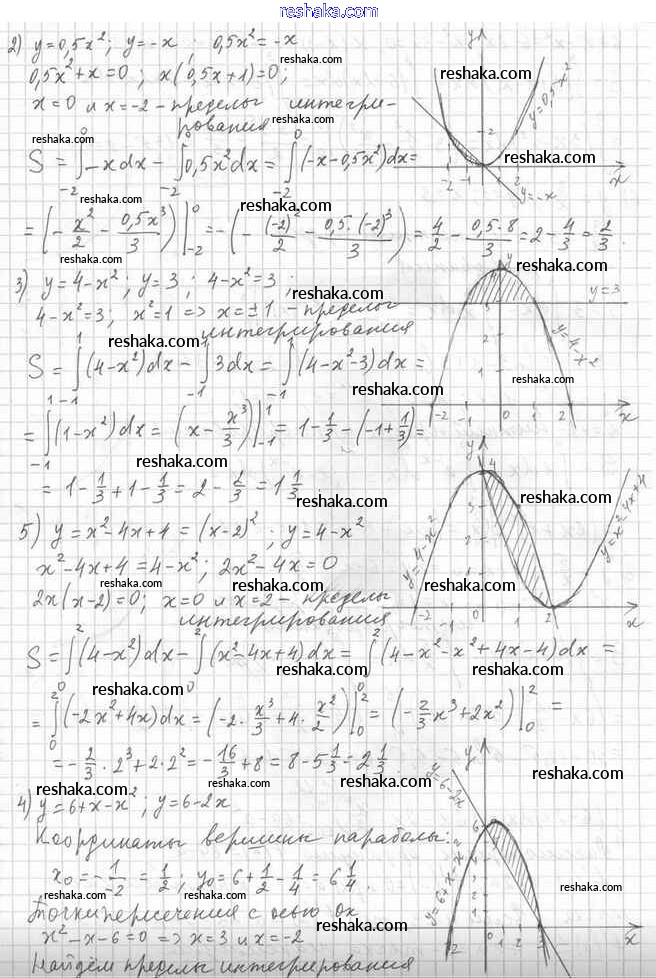 reshaka.com
2) y=0,5x²; y=-x; 0,5x²=-x
0,5x²+x=0; x(0,5x+1)=0;
x=0 и x=-2 - пределы интегри-
рования
S = ∫₋₂⁰ -x dx - ∫₋₂⁰ 0,5x² dx = ∫₋₂⁰ (-x-0,5x²)dx =
= (-x²/2 - 0,5x³/3)|₋₂⁰ = -(-(-2)²/2 - 0,5·(-2)³/3) = 4/2 - 0,5·8/3 = 2 - 4/3 = 2/3.
y=0,5x²
y=-x
3) y=4-x²; y=3; 4-x²=3;
4-x²=3; x²=1 => x=±1 - пределы
интегрирования
S = ∫₋₁¹ (4-x²)dx - ∫₋₁¹ 3dx = ∫₋₁¹ (4-x²-3)dx =
= ∫₋₁¹ (1-x²)dx = (x - x³/3)|₋₁¹ = 1 - 1/3 - (-1 + 1/3) =
= 1 - 1/3 + 1 - 1/3 = 2 - 2/3 = 1 1/3.
y=3
y=4-x²
5) y=x²-4x+4=(x-2)²; y=4-x²
x²-4x+4=4-x²; 2x²-4x=0
2x(x-2)=0; x=0 и x=2 - пределы
интегрирования
S = ∫₀² (4-x²)dx - ∫₀² (x²-4x+4)dx = ∫₀² (4-x²-x²+4x-4)dx =
= ∫₀² (-2x²+4x)dx = (-2·x³/3 + 4·x²/2)|₀² = (-2/3 x³+2x²)|₀² =
= -2/3·2³+2·2² = -16/3+8 = 8 - 5 1/3 = 2 1/3
y=4-x²
y=x²-4x+4
4) y=6+x-x²; y=6-2x
Координаты вершины параболы:
x₀ = -1/-2 = 1/2; y₀ = 6 + 1/2 - 1/4 = 6 1/4.
Точки пересечения с осью ox
x²-x-6=0 => x=3 и x=-2
Найдём пределы интегрирования
y=6-2x
y=6+x-x²